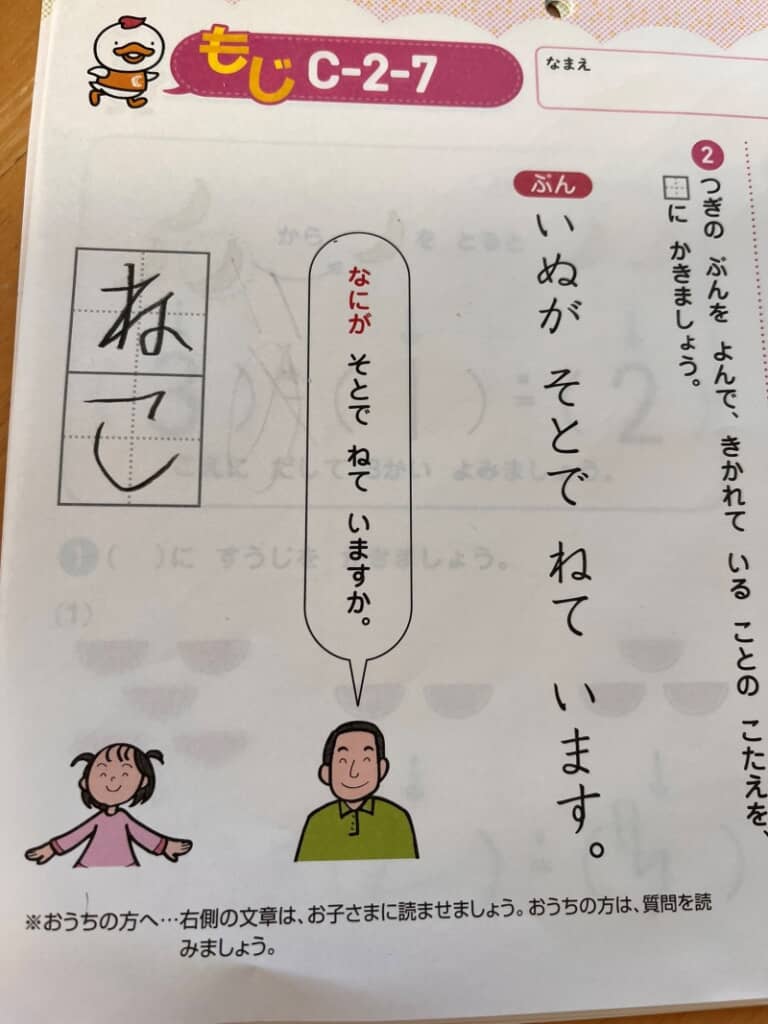 もじ C-2-7
なまえ
2 つぎの ぶんを よんで、きかれて いる ことの こたえを、
に かきましょう。
ぶん
いぬが そとで ねて います。
なにが そとで ねて いますか。
ねこ
※おうちの方へ…右側の文章は、お子さまに読ませましょう。おうちの方は、質問を読
みましょう。